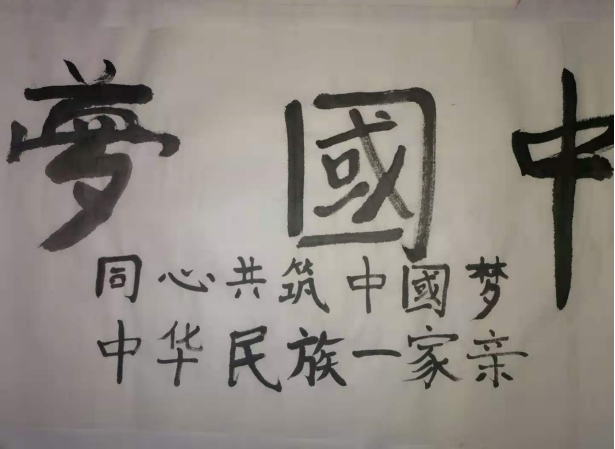 中國夢
同心共筑中國梦
中华民族一家亲